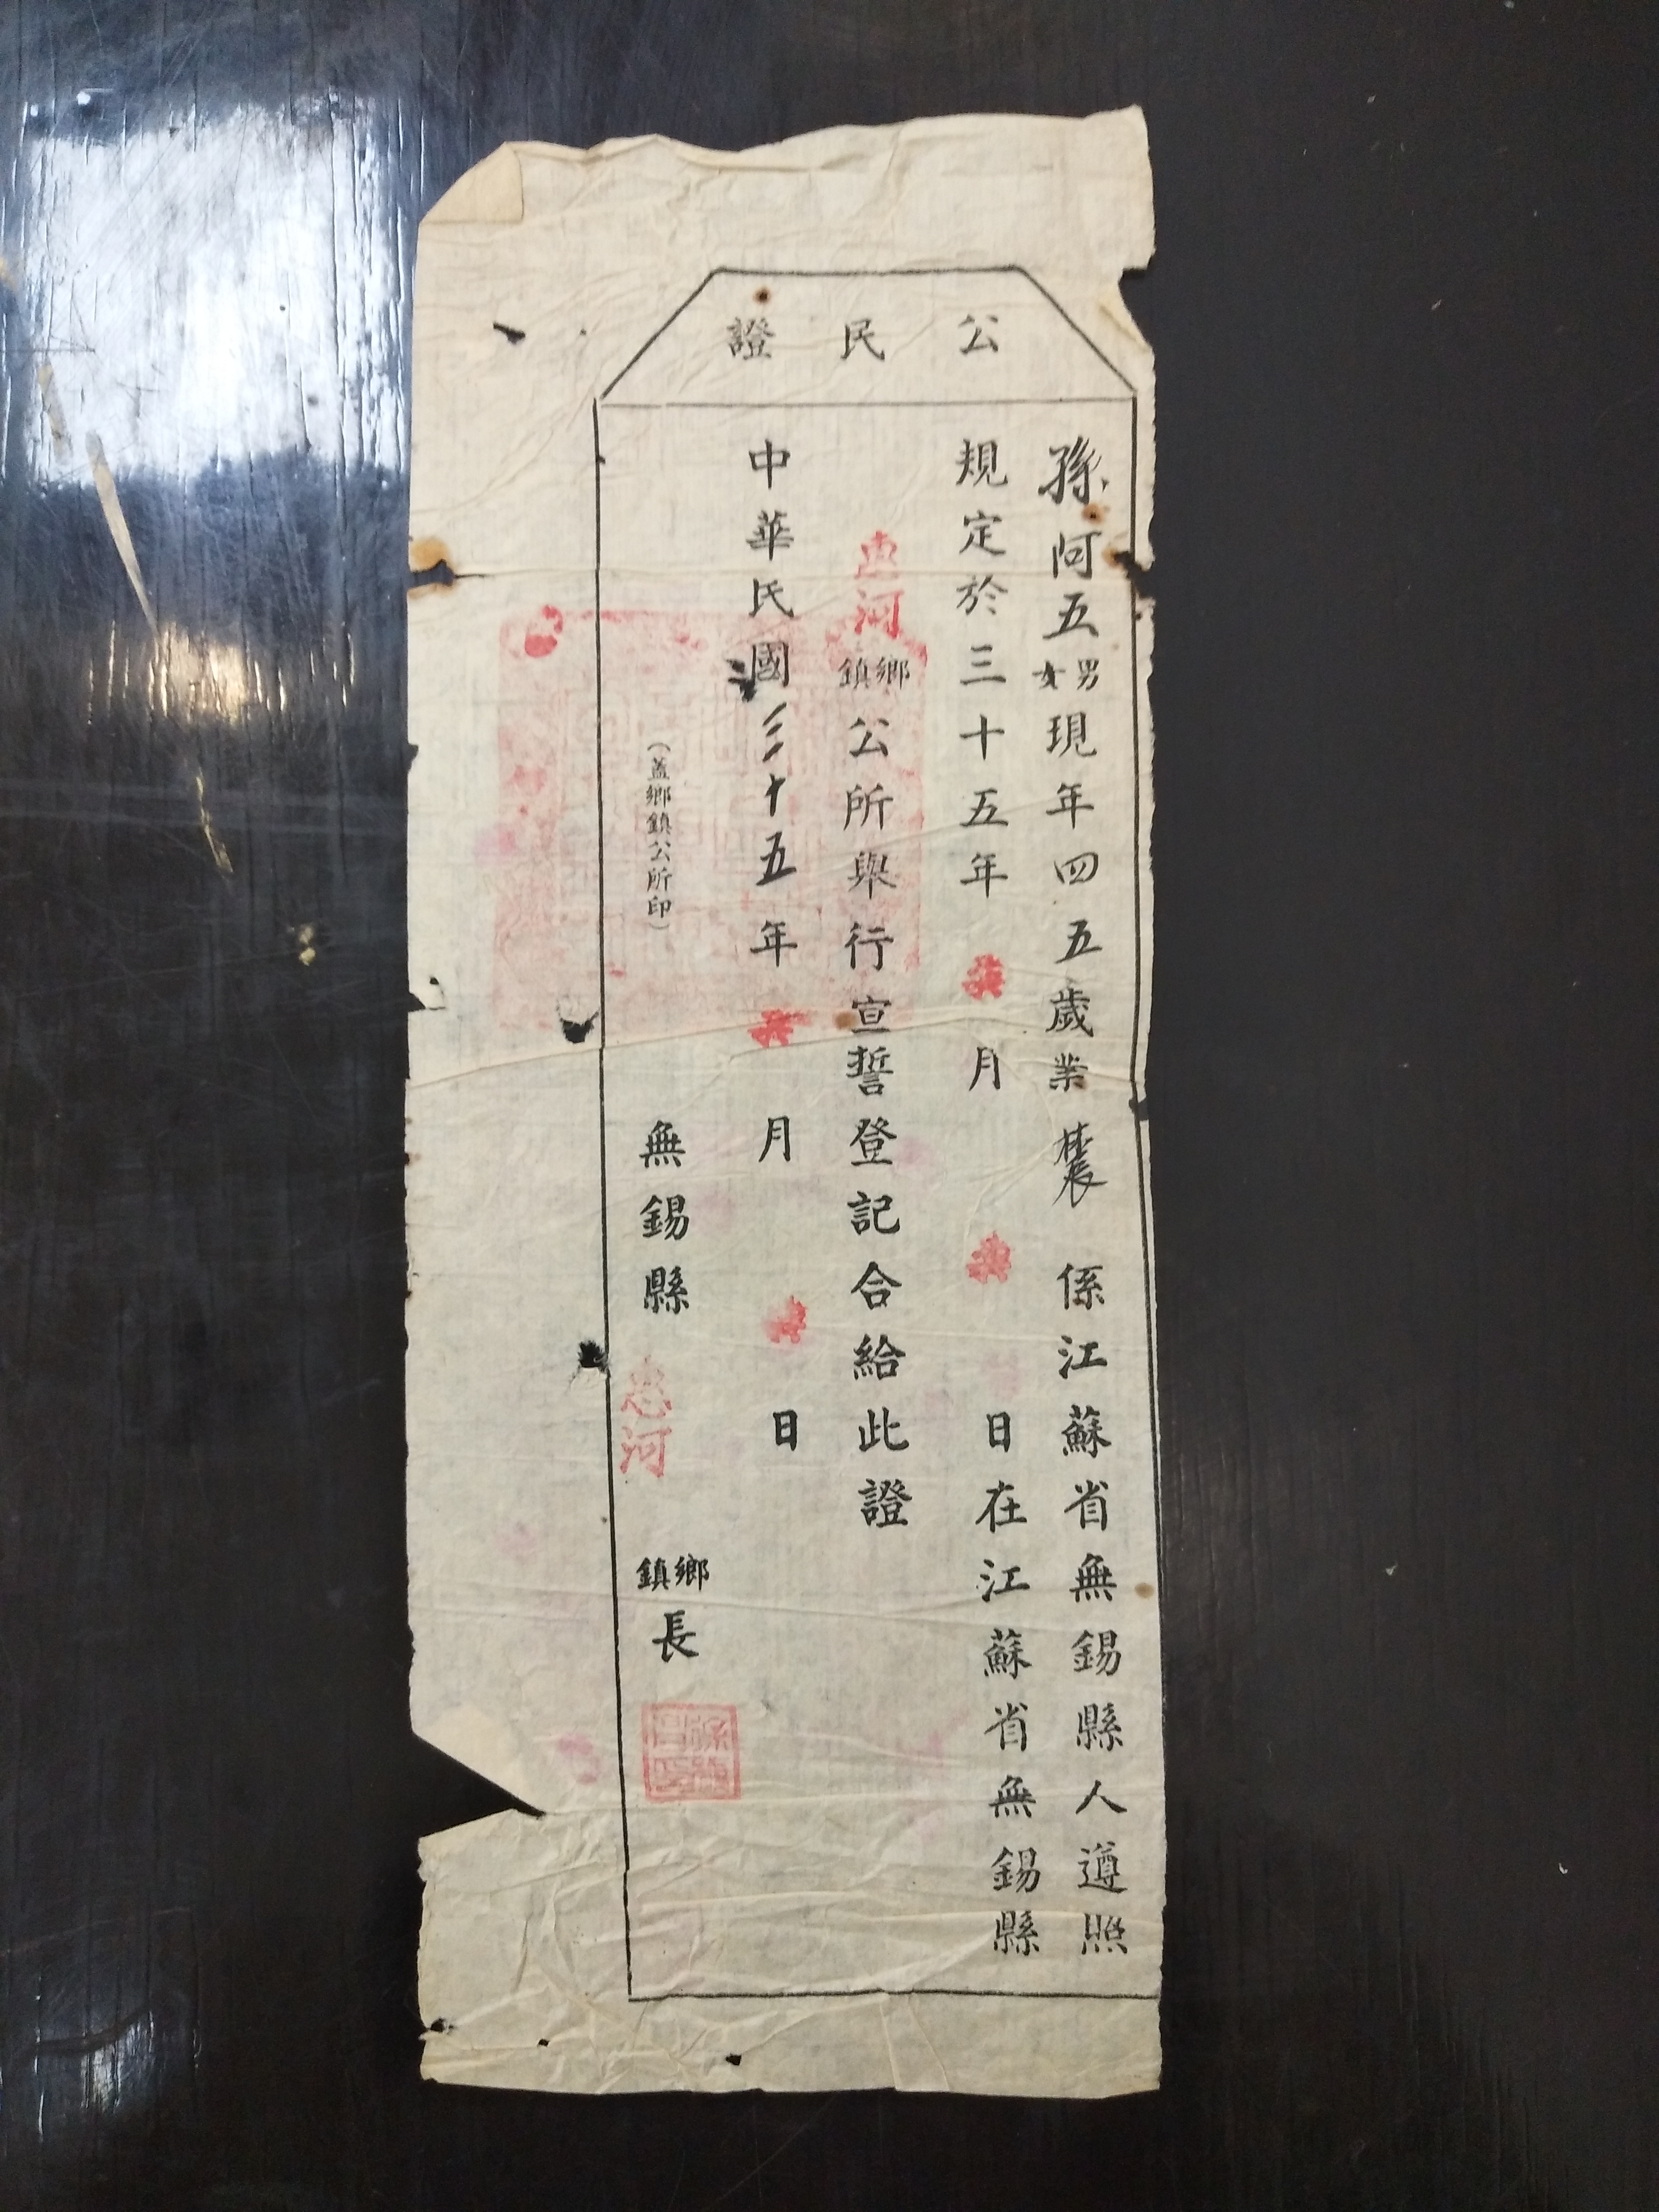 公民證
孫阿五男女現年四五歲業農係江蘇省無錫縣人遵照
規定於三十五年 月 日在江蘇省無錫縣
河鄉鎮公所舉行宣誓登記合給此證
中華民國三十五年 月 日
（蓋鄉鎮公所印）
無錫縣 河鄉鎮長